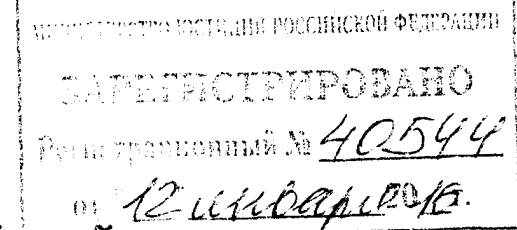 МИНИСТЕРСТВО ЮСТИЦИИ РОССИЙСКОЙ ФЕДЕРАЦИИ
ЗАРЕГИСТРИРОВАНО
Регистрационный № 40544
от "12 января 2016.